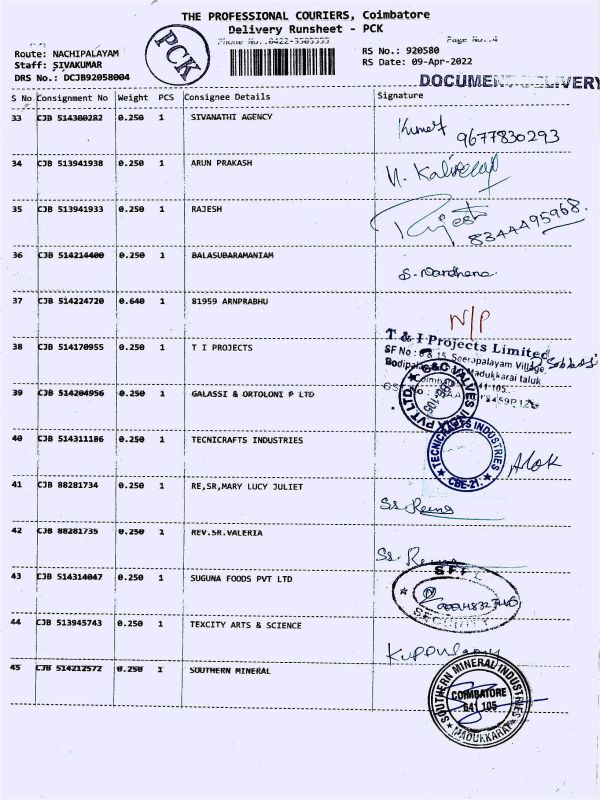 THE PROFESSIONAL COURIERS, Coimbatore
Delivery Runsheet - PCK
Page No..4
Route: NACHIPALAYAM
Staff: SIVAKUMAR
DRS No.: DCJB92058004
PCK
RS No.: 920580
RS Date: 09-Apr-2022
DOCUMENT DELIVERY
S No Consignment No Weight PCS Consignee Details Signature
33 CJB 514300282 0.250 1 SIVANATHI AGENCY Kumar 9677830293
34 CJB 513941938 0.250 1 ARUN PRAKASH
35 CJB 513941933 0.250 1 RAJESH Rajesh 8344495968
36 CJB 514214400 0.250 1 BALASUBARAMANIAM
37 CJB 514224720 0.640 1 81959 ARNPRABHU N/P
38 CJB 514170955 0.250 1 T I PROJECTS
T & I Projects Limited
39 CJB 514204956 0.250 1 GALASSI & ORTOLONI P LTD
40 CJB 514311186 0.250 1 TECNICRAFTS INDUSTRIES
TECNICRAFTS INDUSTRIES
CBE-21. Alok
41 CJB 88281734 0.250 1 RE,SR,MARY LUCY JULIET
42 CJB 88281735 0.250 1 REV.SR.VALERIA
43 CJB 514314047 0.250 1 SUGUNA FOODS PVT LTD
SECURITY
44 CJB 513945743 0.250 1 TEXCITY ARTS & SCIENCE
45 CJB 514212572 0.250 1 SOUTHERN MINERAL
SOUTHERN MINERAL INDUSTRIES
COIMBATORE
641 105
MADUKKARAI